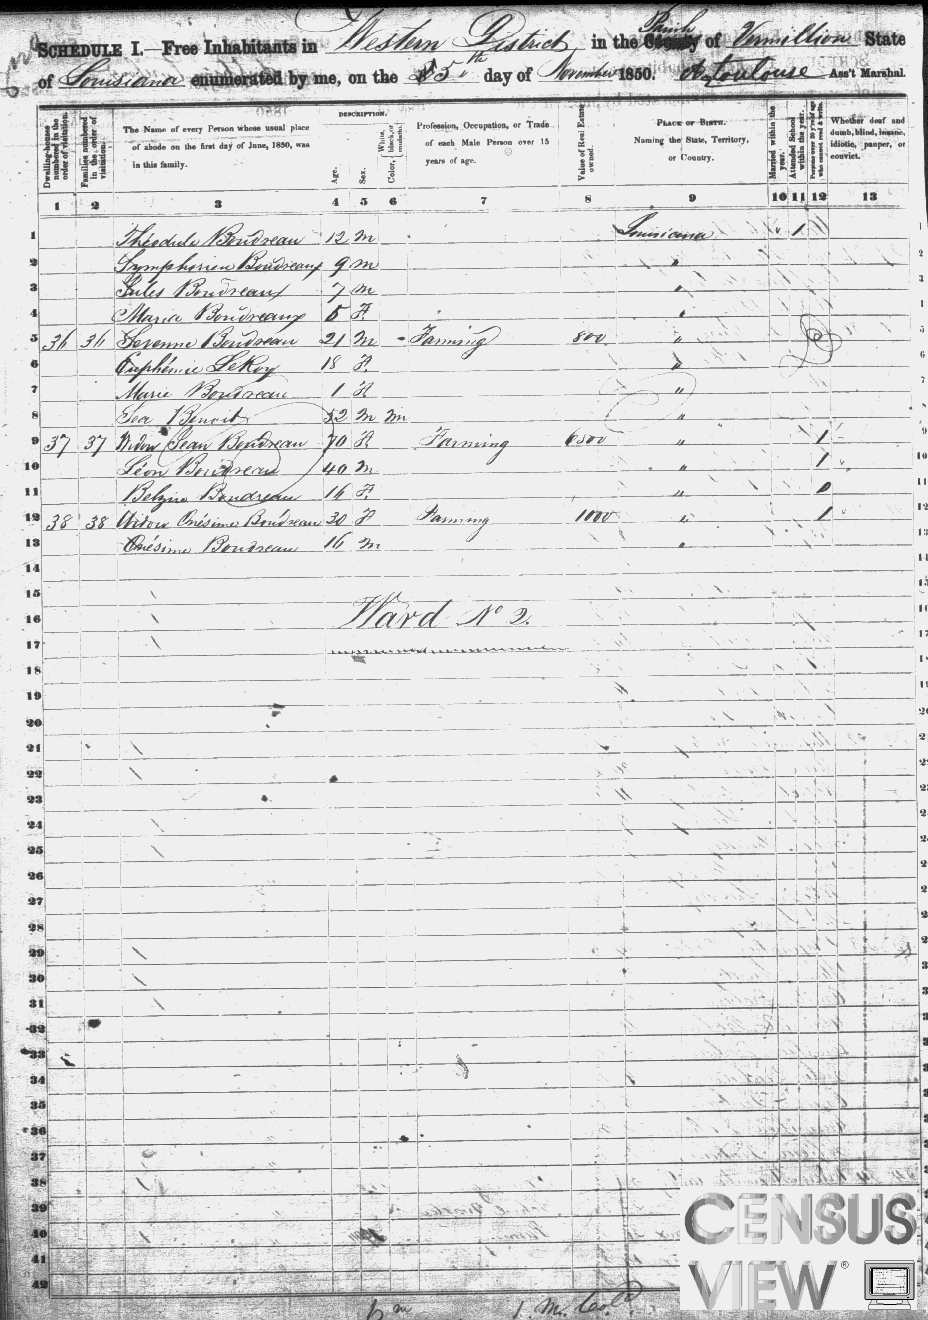 SCHEDULE I.—Free Inhabitants in Western District, in the Parish County of Vermillion State
of Louisiana enumerated by me, on the 5th day of November 1850. A. Toulouse Ass't Marshal.
Dwelling-houses numbered in the order of visitation.
Families numbered in the order of visitation.
The Name of every Person whose usual place of abode on the first day of June, 1850, was in this family.
DESCRIPTION.
Age.
Sex.
Color, White, black, or mulatto.
Profession, Occupation, or Trade of each Male Person over 15 years of age.
Value of Real Estate owned.
PLACE OF BIRTH.
Naming the State, Territory, or Country.
Married within the year.
Attended School within the year.
Persons over 20 y'rs of age who cannot read & write.
Whether deaf and dumb, blind, insane, idiotic, pauper, or convict.
1 2 3 4 5 6 7 8 9 10 11 12 13
1 Théodule Boudreau 12 M Louisiana 1
2 Symphorien Boudreaux 9 M "
3 Jules Boudreaux 7 M "
4 Maria Boudreaux 5 F "
5 36 36 Boudreau 21 M - Farming 800 "
6 Euphémie LeRoy 18 F "
7 Marie Boudreau 1 F "
8 Benoit 52 M m "
9 37 37 Widow Jean Boudreau 70 F Farming 6800 " 1
10 Léon Boudreau 40 M " 1
11 Belzire Boudreau 16 F "
12 38 38 Widow Onésime Boudreau 30 F Farming 1000 " 1
13 Onésime Boudreau 16 M "
14
15
16 Ward No 2.
17
18
19
20
21
22
23
24
25
26
27
28
29
30
31
32
33
34
35
36
37
38
39
40
41
42
CENSUS
VIEW®